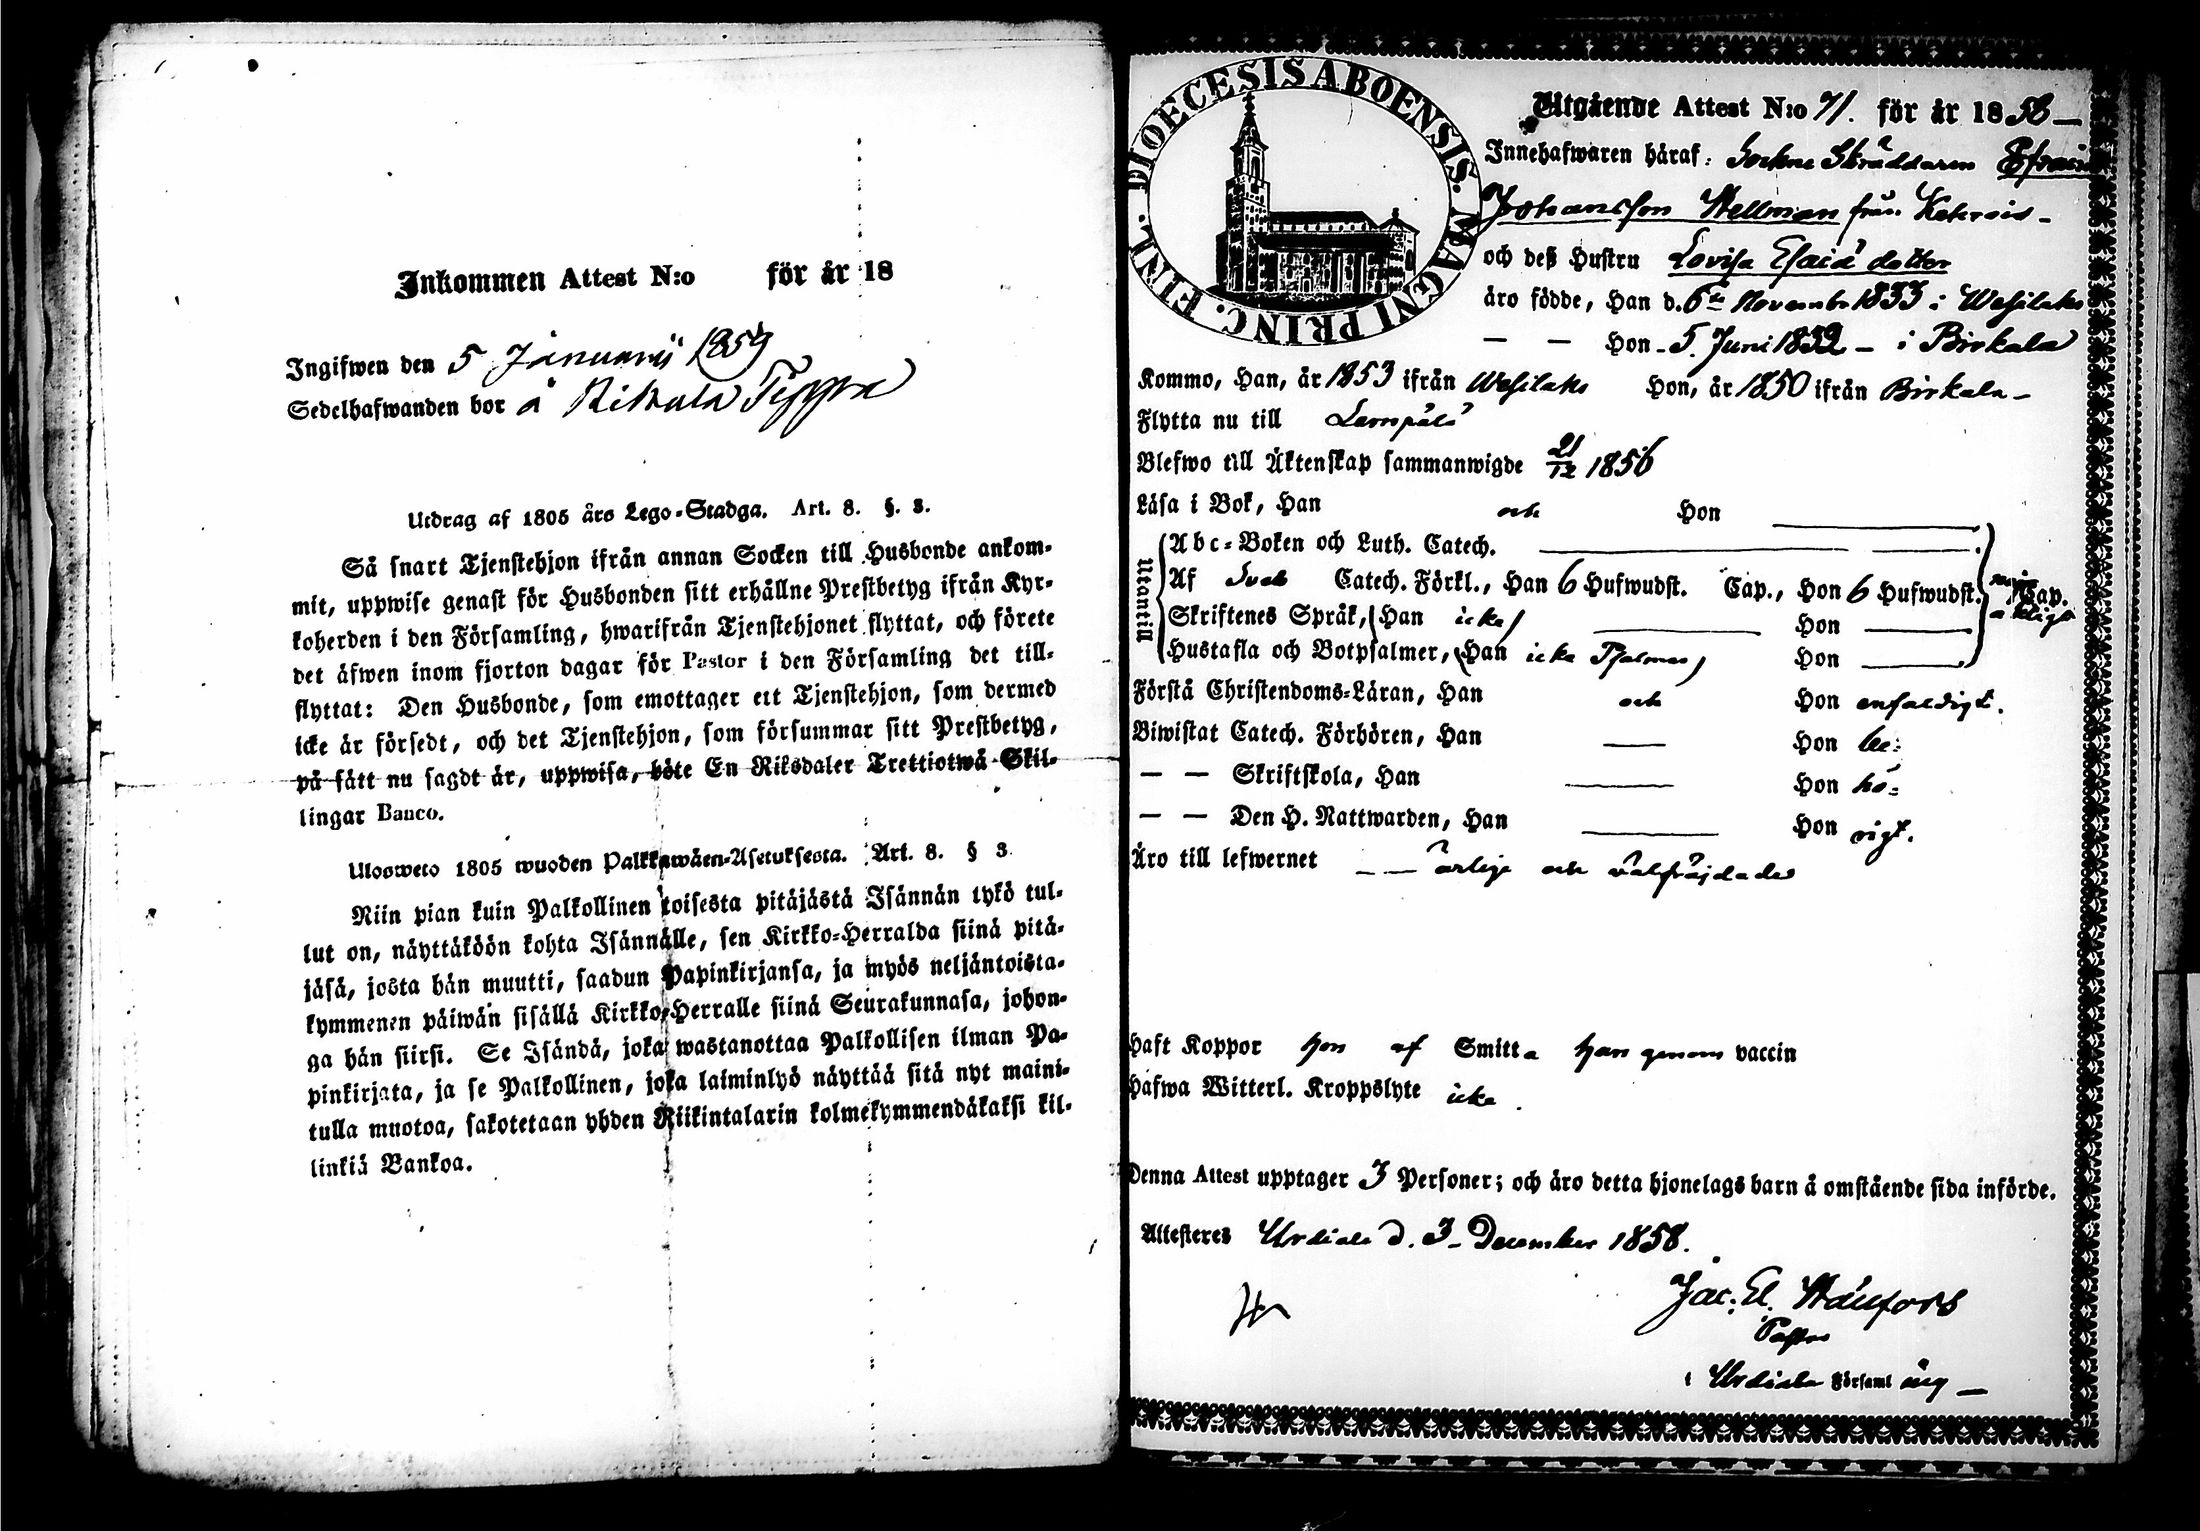 Inkommen Attest N:o för år 18
Ingifwen den 5 Januarii 1859
Sedelhafwanden bor å
Utdrag af 1805 års Lego-Stadga. Art. 8. §. 3.
Så snart Tjenstehjon ifrån annan Socken till Husbonde ankom-
mit, uppwise genast för Husbonden sitt erhållne Prestbetyg ifrån Kyr-
koherden i den Församling, hwarifrån Tjenstehjonet flyttat, och förete
det äfwen inom fjorton dagar för Pastor i den Församling det till-
flyttat: Den Husbonde, som emottager ett Tjenstehjon, som dermed
icke är försedt, och det Tjenstehjon, som försummar sitt Prestbetyg,
på sätt nu sagdt är, uppwisa, böte En Riksdaler Trettiotwå Skil-
lingar Banco.
Ulosweto 1805 wuoden Palkkawäen-Asetuksesta. Art. 8. § 3
Niin pian kuin Palkollinen toisesta pitäjästä Isännän tykö tul-
lut on, näyttäköön kohta Isännälle, sen Kirkko-Herralda siinä pitä-
jäsä, josta hän muutti, saadun Papinkirjansa, ja myös neljäntoista-
kymmenen päiwän sisällä Kirkko-Herralle siinä Seurakunnasa, johon-
ga hän siirsi. Se Isändä, joka wastanottaa Palkollisen ilman Pa-
pinkirjata, ja se Palkollinen, joka laiminlyö näyttää sitä nyt maini-
tulla muotoa, sakotetaan yhden Riikintalarin kolmekymmendäkaksi kil-
linkiä Bankoa.
DIOECESIS ABOENSIS. MAGNI PRINC. FINL.
Utgående Attest N:o 71. för år 1858
Innehafwaren häraf: Sockne Skräddaren Efraim
Johansson Hellman från
och deß Hustru Lovisa Esaiä dotter
äro födde, Han d. 6te November 1833 i Wesilaks
— — Hon 5. Juni 1832 i Birkala
Kommo, Han, år 1853 ifrån Wesilaks Hon, år 1850 ifrån Birkala
Flytta nu till Lempälä
Blefwo till Äktenskap sammanwigde 21/12 1856
Läsa i Bok, Han och Hon
Utantill
Abc-Boken och Luth. Catech.
Af Sveb Catech. Förkl., Han 6 Hufwudst. Cap., Hon 6 Hufwudst. Cap.
Skriftenes Språk, (Han icke) Hon
Hustafla och Botpsalmer, (Han icke Psalmer) Hon
Förstå Christendoms-Läran, Han och Hon enfaldigt.
Biwistat Catech. Förhören, Han — Hon be-
— — Skriftskola, Han — Hon hö-
— — Den H. Nattwarden, Han — Hon rigt.
Äro till lefwernet ärlige och välfräjdade
Haft Koppor hon af Smitta han genom vaccin
Hafwa Witterl. Kroppslyte icke.
Denna Attest upptager 3 Personer; och äro detta hjonelags barn å omstående sida införde.
Attesteres Urdiala d. 3 December 1858.
Jac. El.
Pastor
i Urdiala Församling